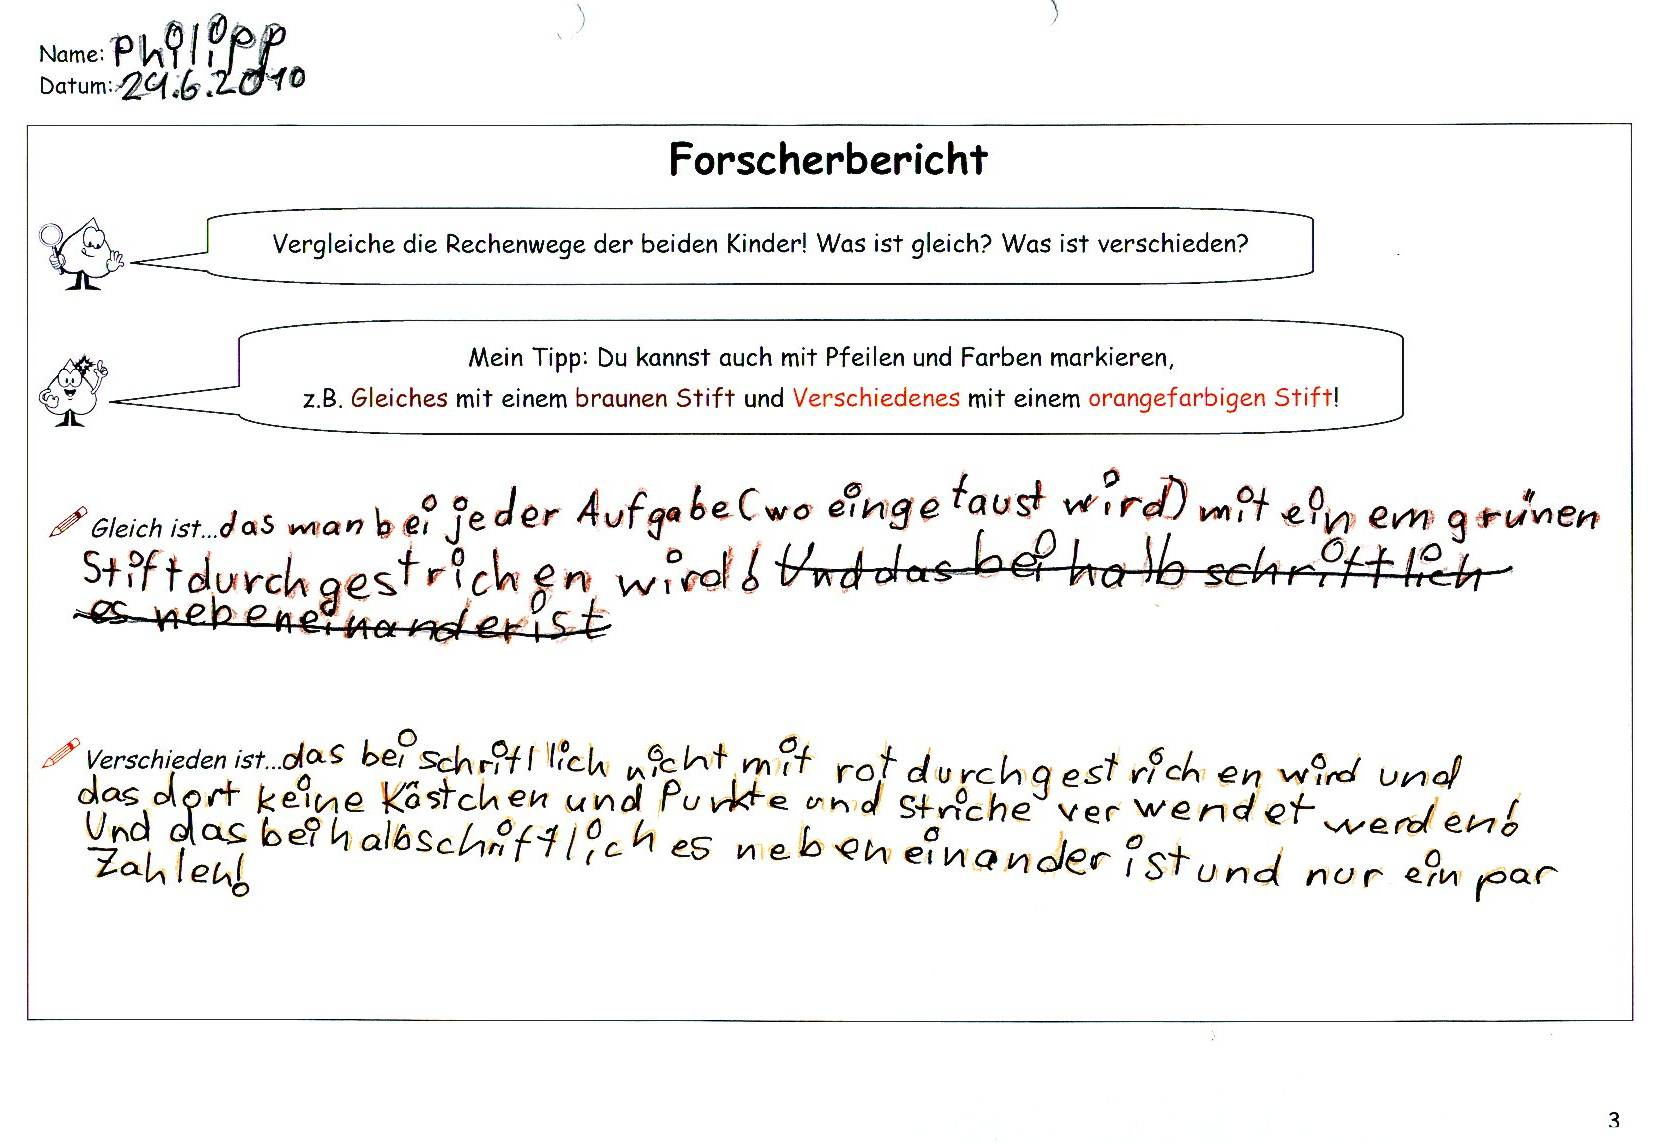 Name: Philipp
Datum: 29.6.2010
Forscherbericht
Vergleiche die Rechenwege der beiden Kinder! Was ist gleich? Was ist verschieden?
Mein Tipp: Du kannst auch mit Pfeilen und Farben markieren,
z.B. Gleiches mit einem braunen Stift und Verschiedenes mit einem orangefarbigen Stift!
Gleich ist...das man bei jeder Aufgabe (wo eingetaust wird) mit einem grünen
Stift durchgestrichen wird! Und das bei halbschriftlich
es nebeneinander ist
Verschieden ist...das bei schriftlich nicht mit rot durchgestrichen wird und
das dort keine Kästchen und Punkte und striche verwendet werden!
Und das bei halbschriftlich es nebeneinander ist und nur ein par
Zahlen!
3